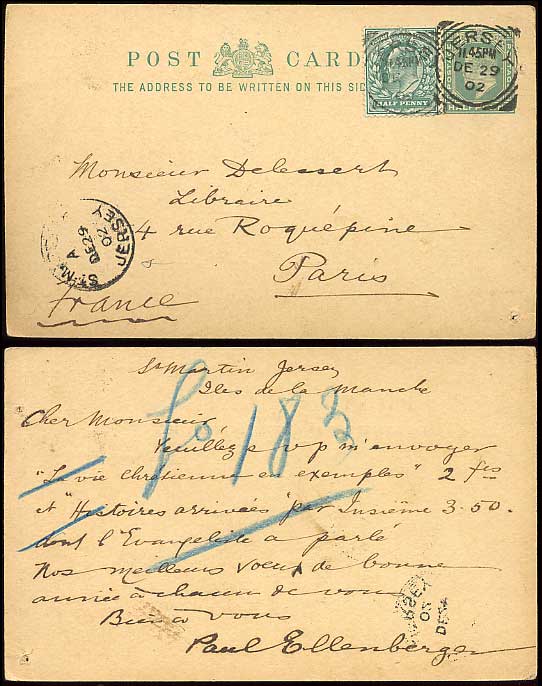 POST CARD
THE ADDRESS TO BE WRITTEN ON THIS SID
HALF PENNY
HALF
JERSEY
11.45PM
DE 29
02
Monsieur Delessert
Libraire
4 rue Roquépine
Paris
France
JERSEY
DE 29
02
A
ST. M
St Martin Jersey
Iles de la Manche
Cher Monsieur
Veuillez s v p m'envoyer
"La vie chrétienne en exemples" 2 fcs
et "Histoires arrivées" par Insième 3.50.
dont l'Evangeliste a parlé
Nos meilleurs voeux de bonne
année à chacun de vous
Bien à vous
Paul Ellenberger